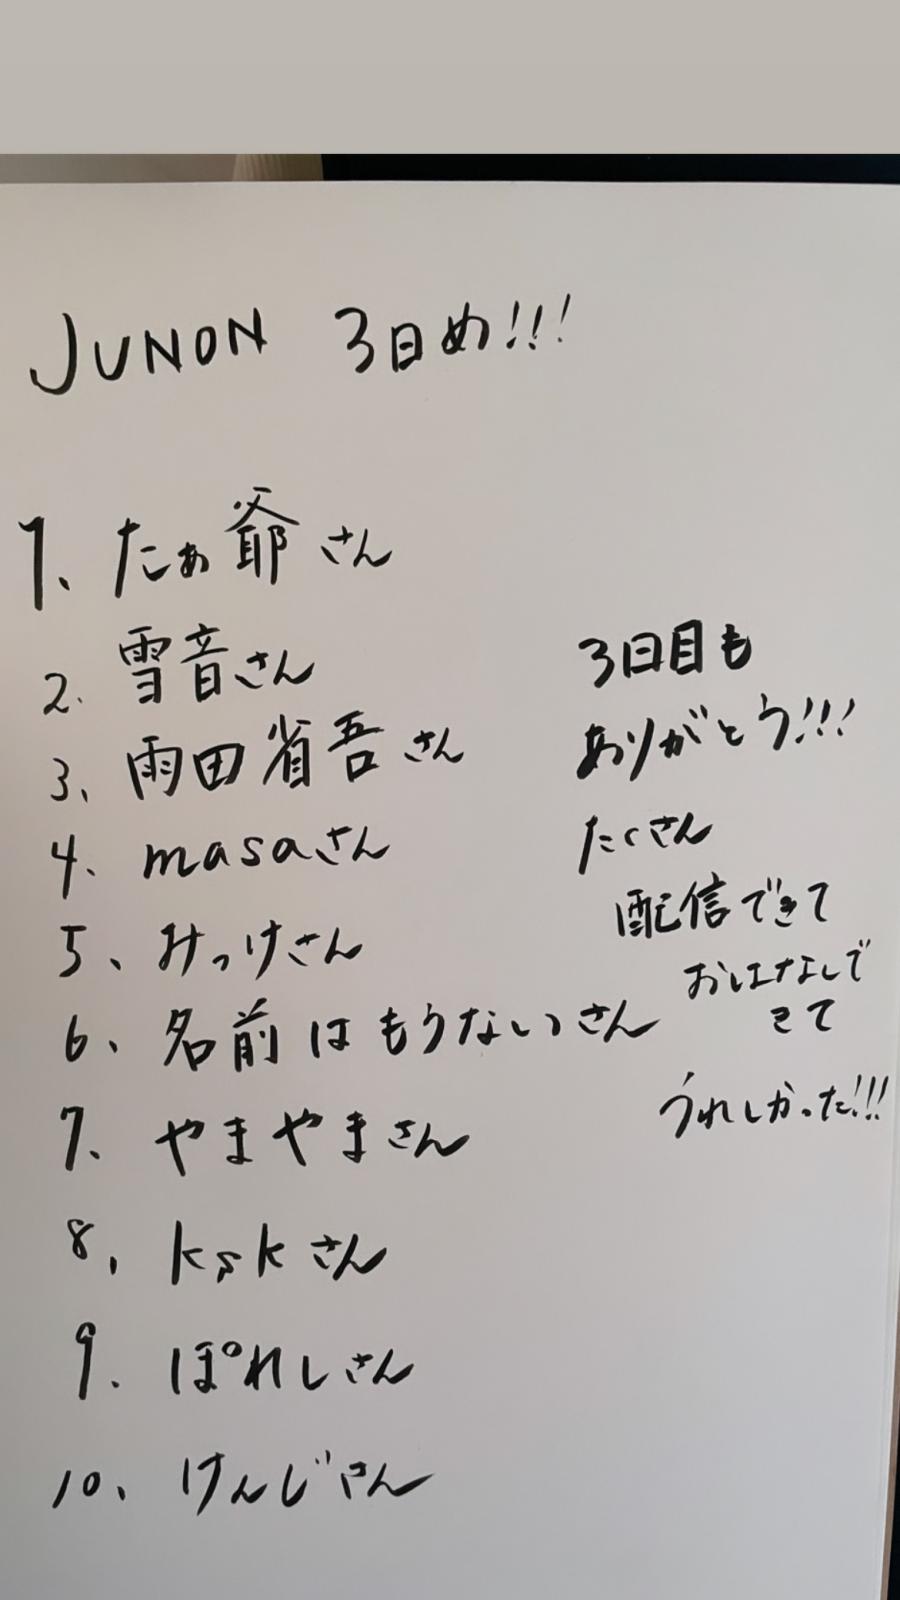 JUNON 3日め!!!
1、たぁ爺さん
2. 雪音さん
3、雨田省吾さん
4、masaさん
5、みっけさん
6、名前はもうないっさん
7、やまやまさん
8、kskさん
9. ぽれしさん
10、けんじさん
3日目も
ありがとう!!!
たくさん
配信できて
おはなしで
きて
うれしかった!!!